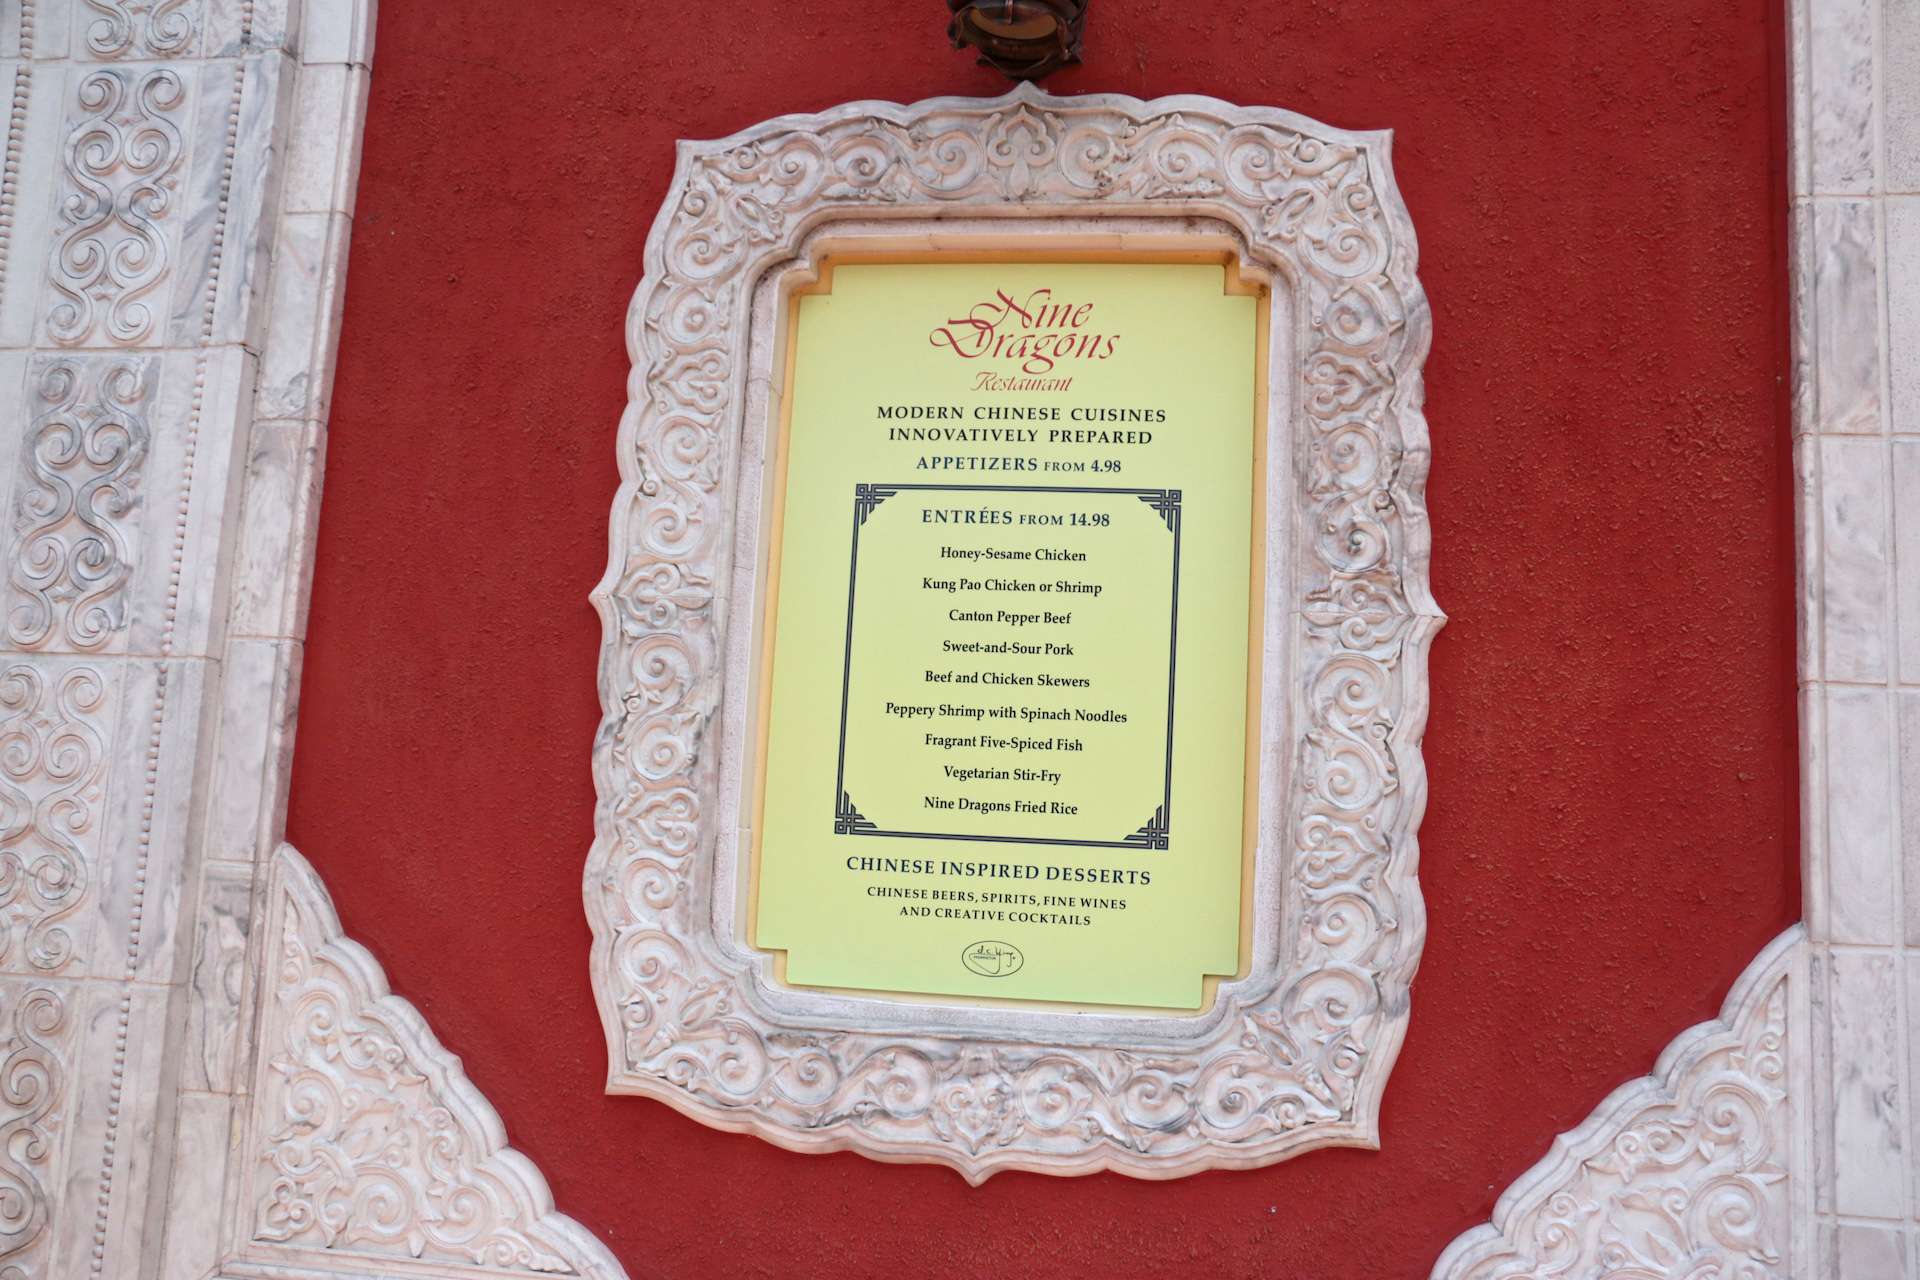 Nine
Dragons
Restaurant
MODERN CHINESE CUISINES
INNOVATIVELY PREPARED
APPETIZERS FROM 4.98
ENTRÉES FROM 14.98
Honey-Sesame Chicken
Kung Pao Chicken or Shrimp
Canton Pepper Beef
Sweet-and-Sour Pork
Beef and Chicken Skewers
Peppery Shrimp with Spinach Noodles
Fragrant Five-Spiced Fish
Vegetarian Stir-Fry
Nine Dragons Fried Rice
CHINESE INSPIRED DESSERTS
CHINESE BEERS, SPIRITS, FINE WINES
AND CREATIVE COCKTAILS